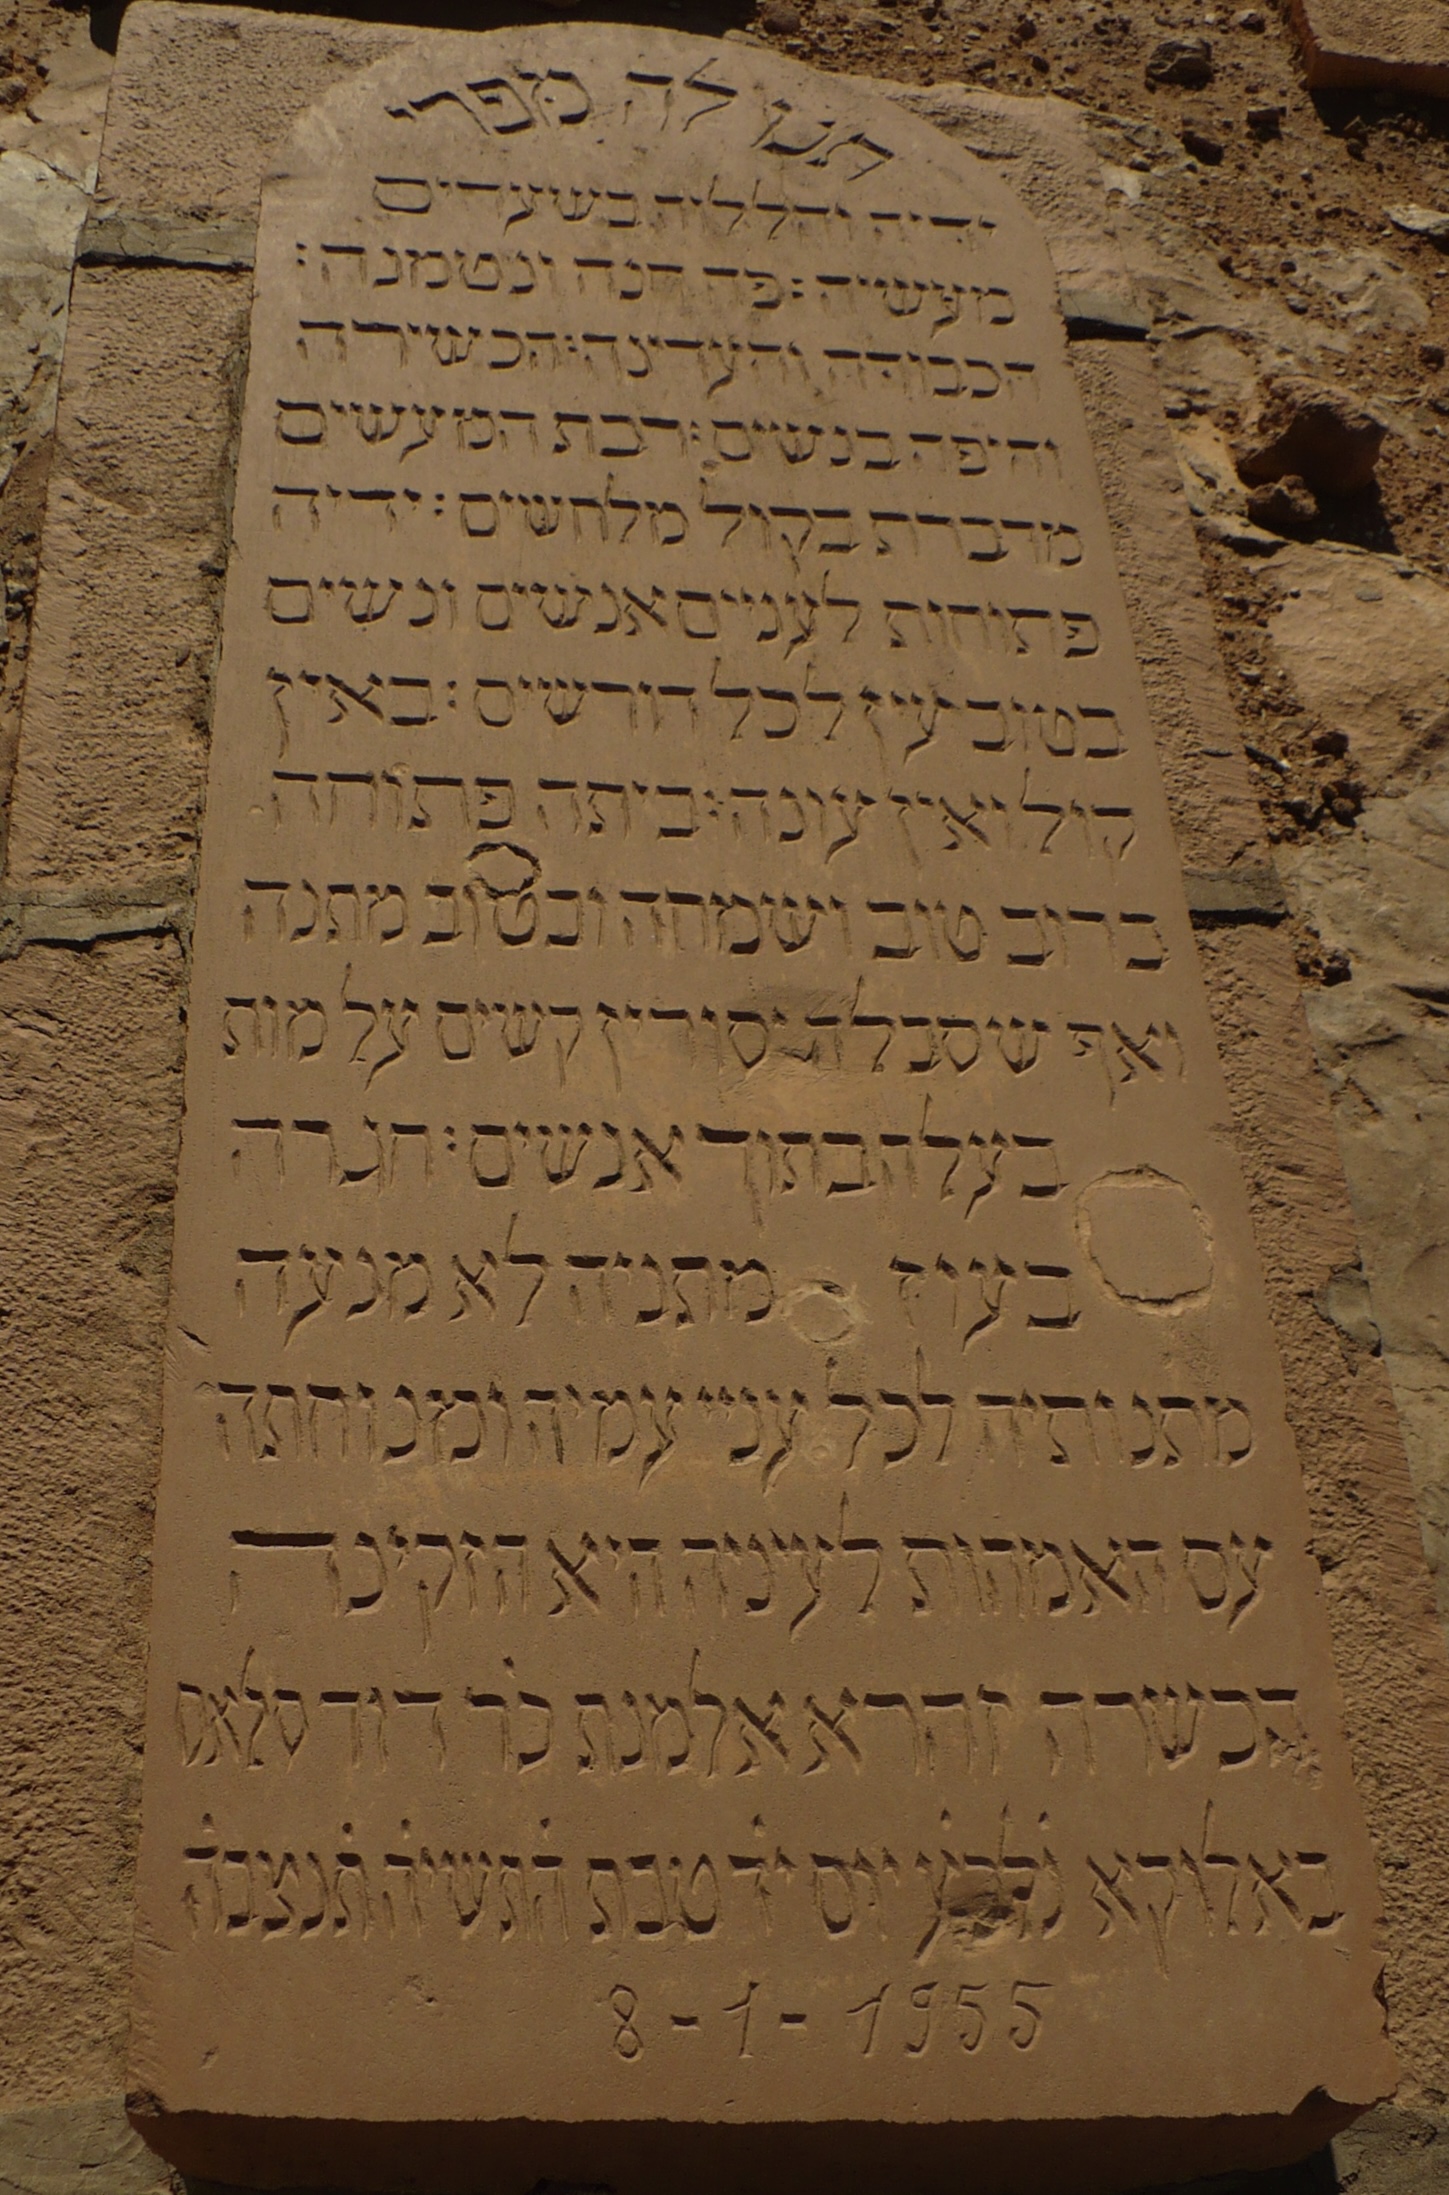 תנו לה מפרי
ידיה והללוה בשערים
מעשיה : פה חנה ונטמנה :
הכבודה והעדינה : הכשירה
והיפה בנשים : רבת המעשים
מדברת בקול מלחשים : ידיה
פתוחות לעניים אנשים ונשים
בטוב עין לכל דורשים : באין
קול ואין עונה : ביתה פתוחה
ברוב טוב ושמחה ובטוב מתנה
ואף שסבלה יסורין קשים על מות
בעלה בתוך אנשים : חגרה
בעוז מתניה לא מנעה
מתנותיה לכל עניי עמיה ומנוחתה
עם האמהות לעיניה היא הזקינה
הכשרה זהרא אלמנת כ̇ר דוד סלאס
באלוקא נ̇ל̇ב̇ע̇ יום י̇ד טבת ה̇תשי̇ה̇ ת̇נצב̇ה̇
8 - 1 - 1955